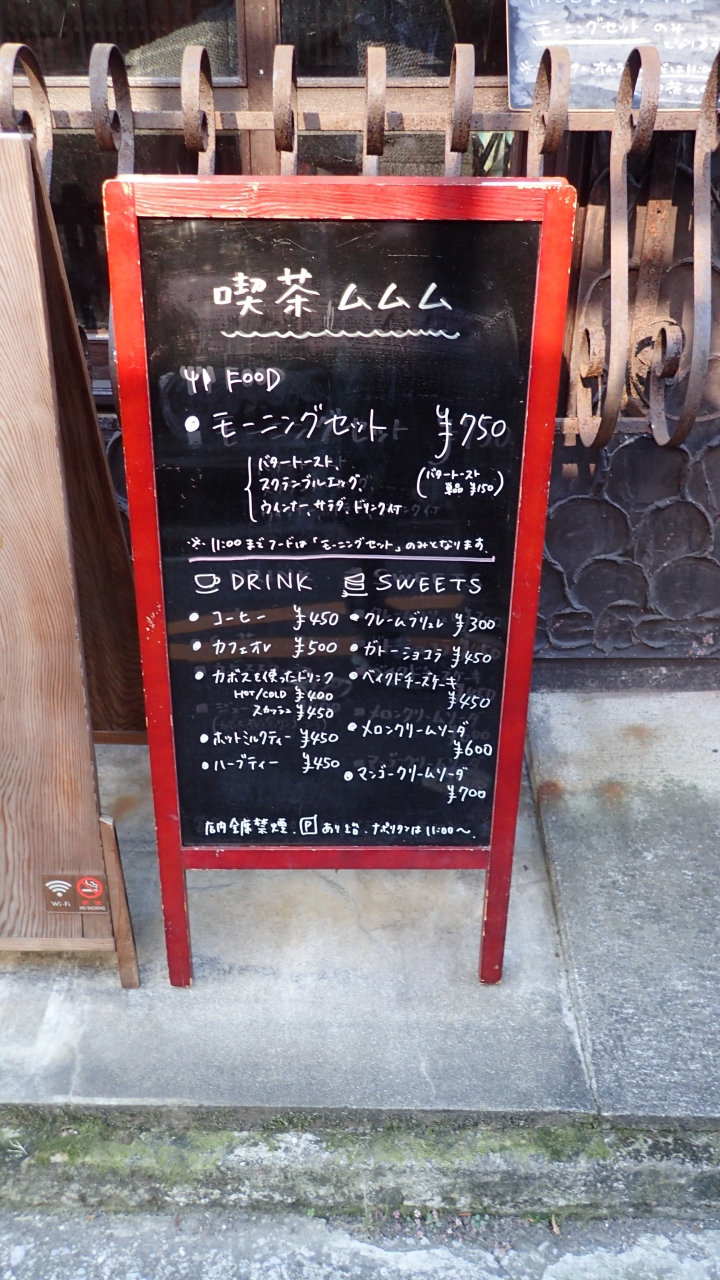 モーニングセット のみ
となります
喫茶ムムム
FOOD
● モーニングセット ¥750
バタートースト、
スクランブルエッグ、
ウインナー、サラダ、ドリンク付
(バタートースト
単品 ¥150)
※ 11:00までフードは「モーニングセット」のみとなります。
DRINK
● コーヒー ¥450
● カフェオレ ¥500
● カボスを使ったドリンク
HOT/COLD ¥400
スカッシュ ¥450
● ホットミルクティー ¥450
● ハーブティー ¥450
SWEETS
● クレームブリュレ ¥300
● ガトーショコラ ¥450
● ベイクドチーズケーキ
¥450
● メロンクリームソーダ
¥600
● マンゴークリームソーダ
¥700
店内全席禁煙. P あり〼. ナポリタンは11:00〜.
Wi-Fi
NO SMOKING